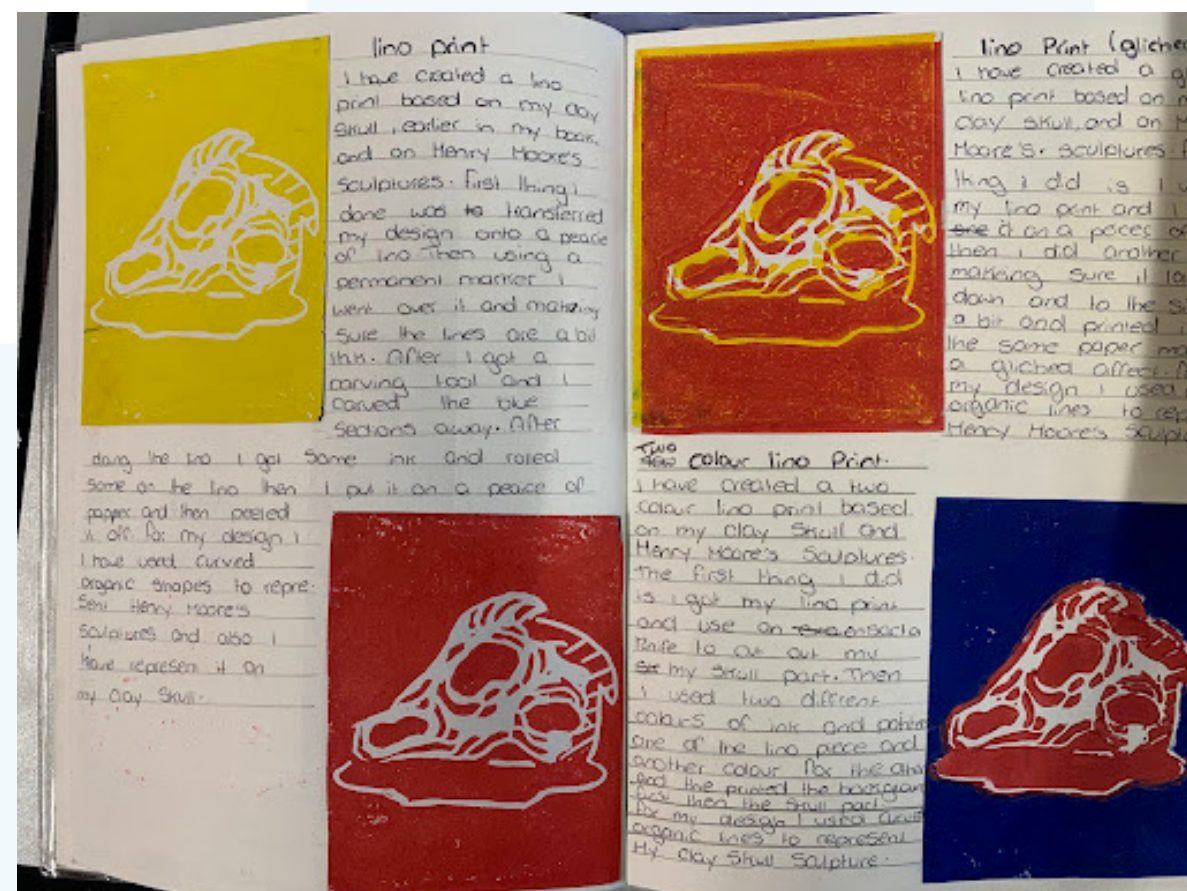 lino print
i have created a lino
print based on my clay
skull, earlier in my book,
and on Henry Moore's
sculptures. first thing i
done was to transferred
my design onto a peace
of lino then using a
permanent marker i
went over it and making
sure the lines are a bit
thik. After i got a
carving tool and i
carved the blue
sections away. After
doing the lino i got some ink and rolled
some on the lino then i put it on a peace of
papper and then peeled
it off. for my design i
i have used curved
organic shapes to repre-
sent Henry Moore's
sculptures and also i
have represent it on
my clay skull.
lino Print (gliched
i have created a
lino print based on
clay skull, and on
Moore's. sculptures.
thing i did is i
my lino print and i
it on a peces of
then i did another
making sure it
down and to the
a bit and printed
the same paper
a gliched affect.
my design i used
organic lines to
Henry Moore's
Two
colour lino Print.
i have created a two
colour lino print based
on my clay skull and
Henry Moore's Sculptures.
The first thing i did
is i got my lino print
and use an
knife to cut out my
my skull part. Then
i used two different
colours of ink and
one of the lino piece and
another colour for the
and the printed the
then the skull part.
for my design i used
organic lines to represent
My clay skull sculpture.